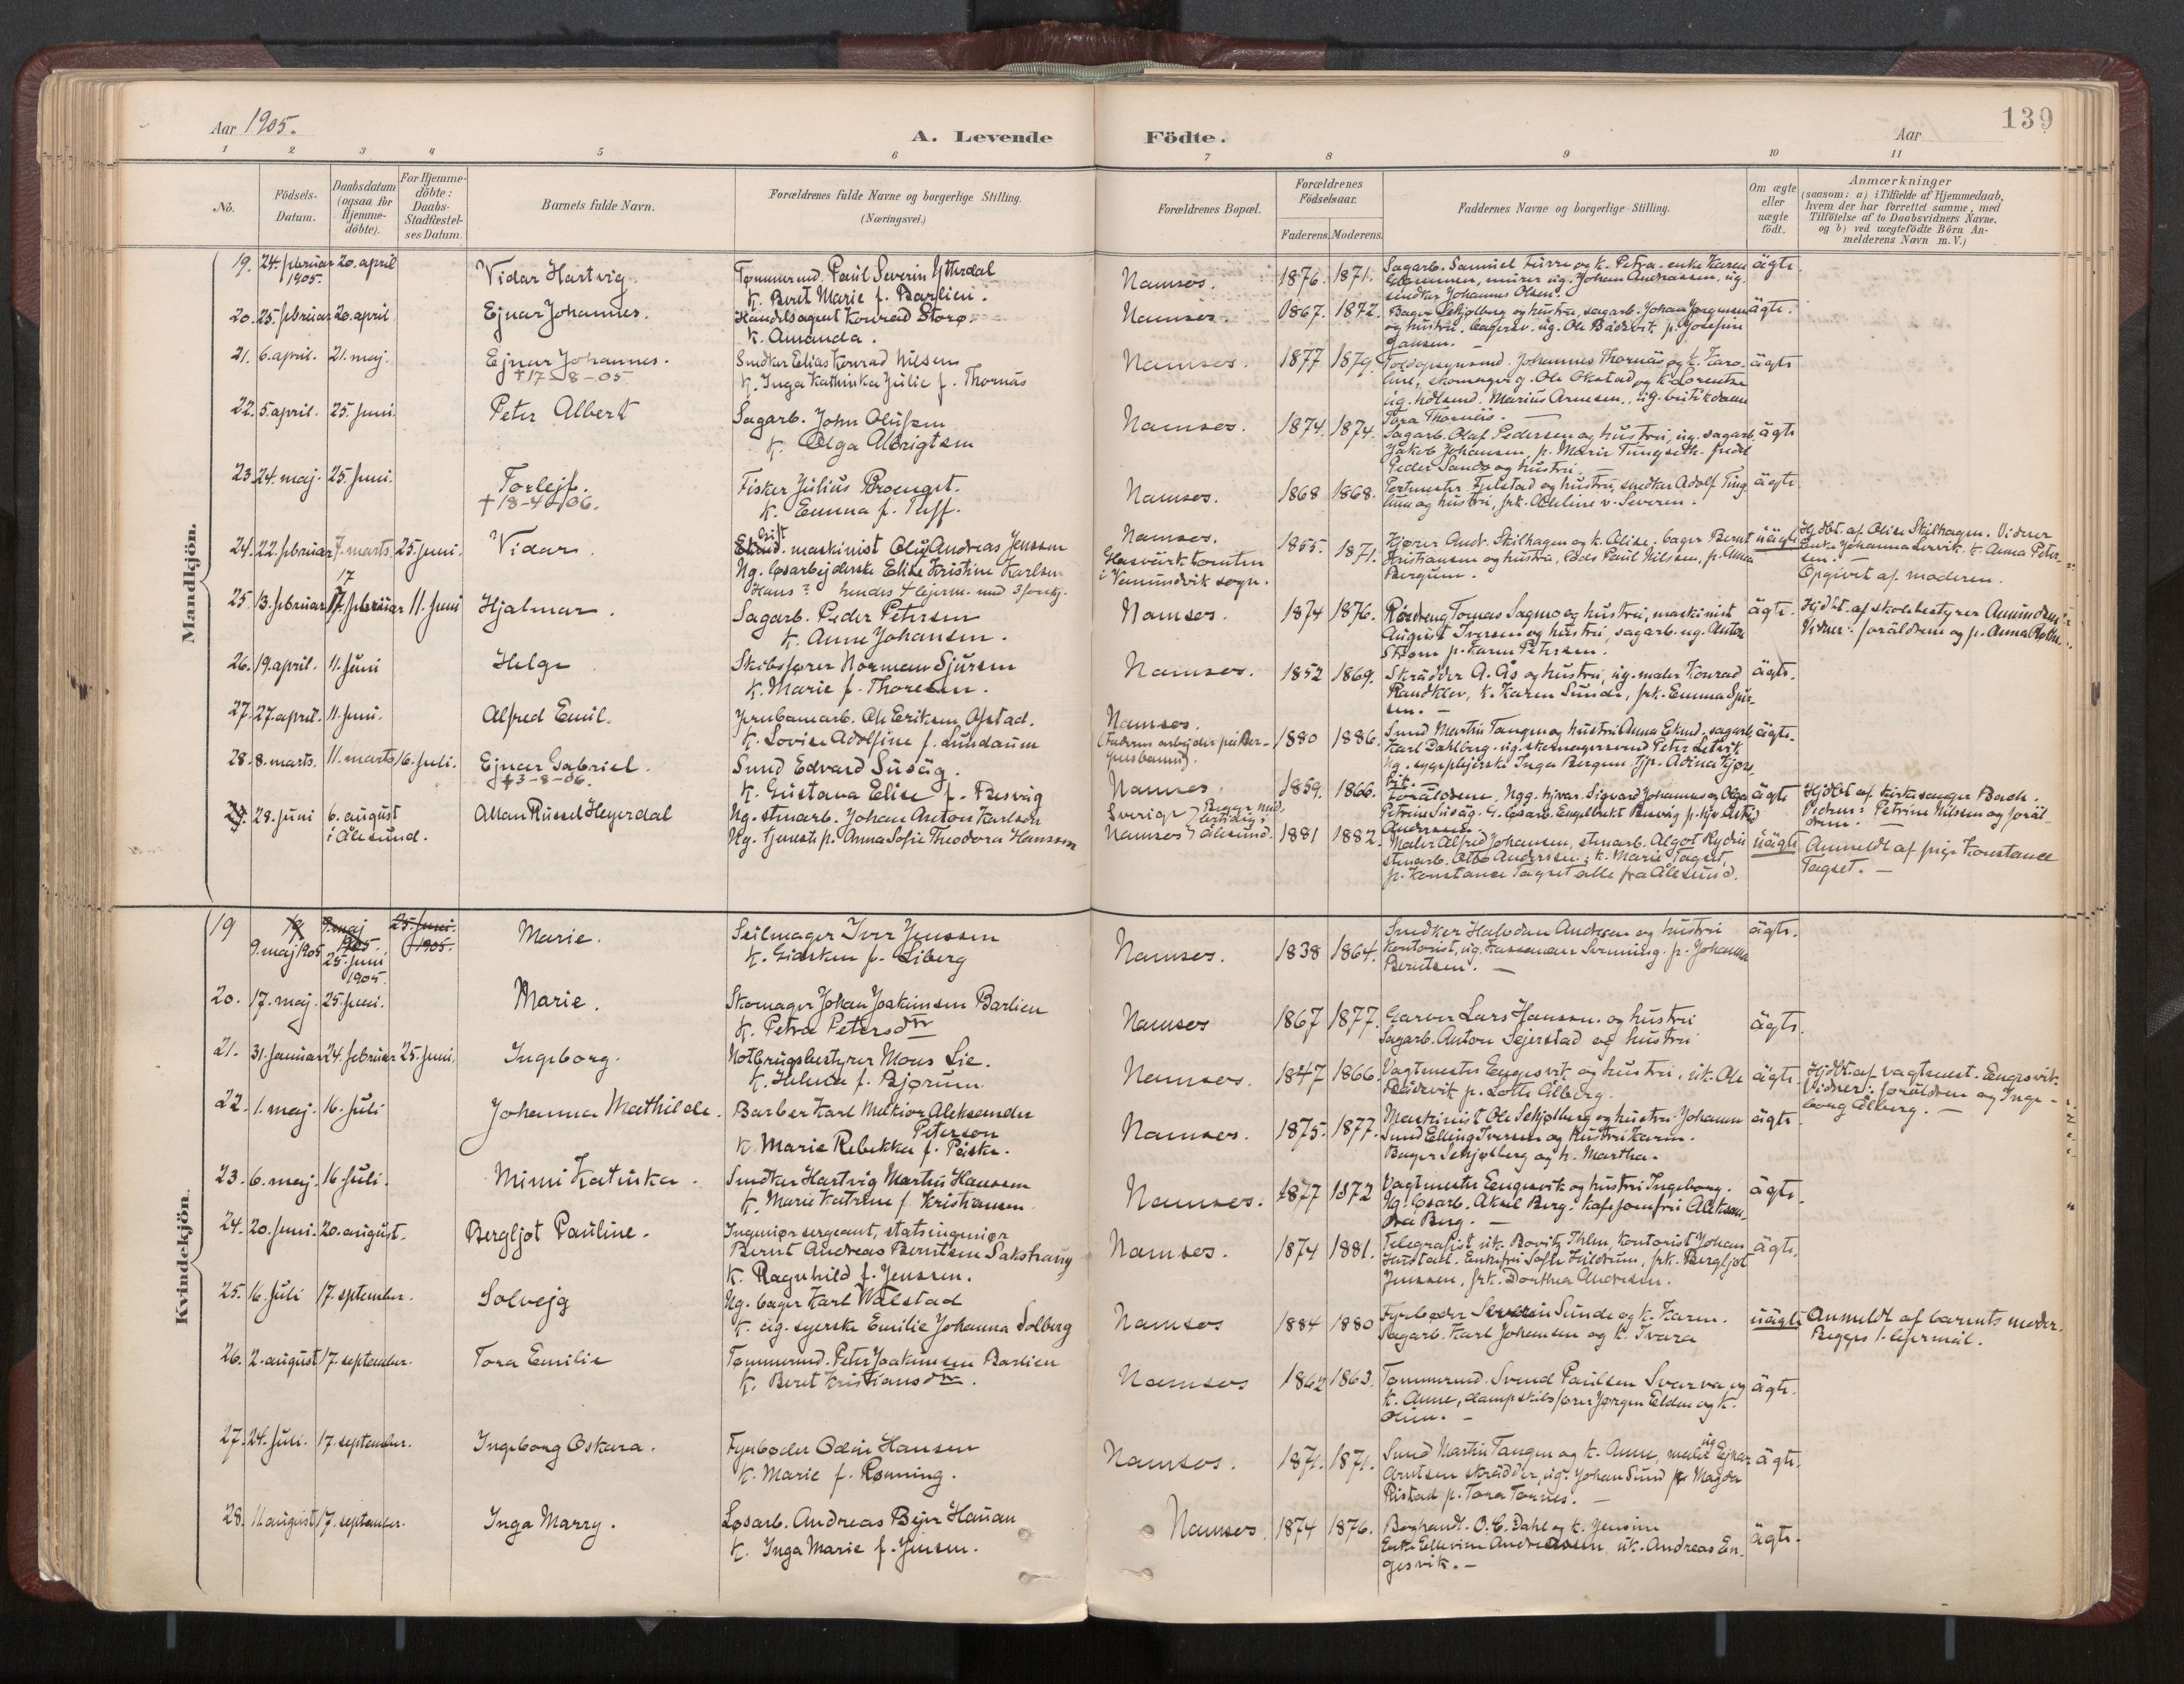 Aar 1905.
A. Levende
Födte.
Aar
139
1 2 3 4 5 6 7 8 9 10 11
No.
Födsels-
Datum.
Daabsdatum
(ogsaa for
Hjemme-
döbte).
For Hjemme-
döbte:
Daabs-
Stadfæstel-
ses Datum.
Barnets fulde Navn.
Forældrenes fulde Navne og borgerlige Stilling.
(Næringsvei.)
Forældrenes Bopæl.
Forældrenes
Födselsaar.
Faderens. Moderens.
Faddernes Navne og borgerlige Stilling.
Om ægte
eller
uægte
födt.
Anmærkninger
(saasom: a) i Tilfælde af Hjemmedaab,
hvem der har forrettet samme, med
Tilföielse af to Daabsvidners Navne,
og b) ved uægtefödte Börn An-
melderens Navn m. V.)
Mandkjön.
19. 24. februar 20. april
1905.
Vidar Hartvig
Tømmermd. Paul Severin Ytterdal
K. Beret Marie f. Barlien.
Namsos. 1876. 1871.
Sagarb. Samuel Furre og k. Petra. enke Karen
murer ug. Johan Andreassen, ug.
snedker Johannes Olsen.
ägte.
20. 25. februar 20. april
Ejnar Johannes.
Handelsagent Konrad Storø.
K. Amanda.
Namsos. 1867. 1872.
Bager Schjølberg og hustru, sagarb. Johan Jørgensen
og hustru, bagersv. ug. Ole Bådsvik p. Josefine
Jansen. —
ägte.
21. 6. april. 21. maj.
Ejnar Johannes.
† 17-8-05
Snedker Elias Konrad Nilsen
K. Inga Kathinka Julie f. Thornäs
Namsos. 1877 1879.
Toldopsynsmd. Johannes Thornäs og k. Karo-
line, skomager g. Ole Okstad og k. Lorentse
ug. hdlsmd. Marius Arnesen, ug. butikdame
Tora Thornäs. —
ägte
22. 5. april. 25. juni.
Peter Albert
Sagarb. John Olufsen
K. Olga Albrigtsen
Namsos. 1874. 1874.
Sagarb. Olaf Pedersen og hustru, ug. sagarb.
Jakob Johansen, p. Marie Tungseth.
Peder Sands og hustru.
ägte
23. 24. maj. 25. juni.
Torlejf.
Fisker Julius Broenget.
K. Emma f. Puff.
Namsos. 1868 1868.
Portmester Fjelstad og hustru, snedker Adolf Ting-
og hustru, frk. v. Severen.
ägte.
24. 22. februar 7. marts. 25. juni.
Vidar.
Gift maskinist Oluf Andreas Jenssen
Ug. løsarbejderske Elise Kristine Karlsen
Hans 2 hendes 4 lejerm. med 3 forskj.
Namsos.
Glasvärktomten
i Vemundvik sogn.
1855. 1871.
Kjører Andr. Skilhagen og k. Olise. bager Bernt
Kristiansen og hustru, lods Paul Nilssen, p. Anna
Bergum.
uägte
Hjdbt. af Olise Skilhagen. Vidner
enke Johanna Lervik. k. Anna Peter-
sen. —
Opgivet af moderen.
25. 13. februar 17. februar 11. juni
17
Hjalmar.
Sagarb. Peder Petersen
K. Anne Johansen.
Namsos. 1874 1876.
Tomas Sagmo og hustru, maskinist
August Iversen og hustru, sagarb. ug. Anton
Strøm p. Karen Petersen.
ägte.
Hjdbt. af skolebestyrer Amundsen
Vidner: foräldrene og p. Anna
26. 19. april. 11. juni
Helge
Skibsfører Norman Sjursen
K. Marie f. Thoresen.
Namsos. 1852 1869.
Skrädder A. Ås og hustru, ug. maler Konrad
Raudklev, k. Karen Sunde, frk. Emma Sjur-
sen. —
ägte.
27. 27. april. 11. juni.
Alfred Emil.
Jernbanearb. Ole Eriksen Ofstad.
K. Lovise Adolfine f. Lundaum
Namsos.
(Faderen arbejder på Ber-
gensbanen).
1880 1886.
Smed Martin Tangen og hustru Anna sagarb.
Karl Dahlberg. ug. skomagersvend Peter Letvik
Ug. sygeplejerske Inga Bergum tjp. Adina Kjøs-
vik. —
ägte.
28. 8. marts. 11. marts 16. juli.
Ejnar Gabriel.
† 3-8-06.
Smed Edvard Susäg.
K. Gustava Elise f. Besväg
Namsos 1859. 1866.
Foräldrene, Ugg. hjvar. Sigvard Johannes og Olga
Petrine Susäg. G. løsarb. Engelbrekt Besväg p. hjv. Astrid
Andersen
ägte
Hjdbt. af kirkesanger Bach.
Vidner: Petrine Nilssen og foräl-
drene. —
29. 28. juni 6. august
i Ålesund.
Allan Russel Heyerdal
Ug. stenarb. Johan Anton Karlson
Ug. tjeneste p. Anna Sofie Theodora Hanssen
Sverige } Begge mid-
lertidig i
Namsos } Ålesund.
1881 1882.
Maler Alfred Johansen, stenarb. Algot Rydin
stenarb. Otto Andersen, k. Marie Tagset,
p. Konstance Tagset alle fra Ålesund.
uägte
Anmeldt af pige Konstance
Tagset. —
Kvindekjön.
19 9. maj 25. juni.
1905. 1905.
9. maj 1905 25. juni
1905.
Marie.
Seilmager Iver Jenssen
K. Gisken f. Liberg
Namsos. 1838 1864.
Snedker Halvdan Andresen og hustru
Kontorist, ug. Kassemann Svenning. p. Johanna
Berntsen. —
ägte.
20. 17. maj. 25. juni.
Marie.
Skomager Johan Joakimsen Barlien
K. Petra Petersdtr
Namsos 1867 1877.
Garver Lars Hansen. og hustru
Sagarb. Anton Sejerstad og hustru
ägte.
21. 31. januar 24. februar 25. juni.
Ingeborg.
Notbrugsbestyrer Mons Lie.
K. Helma f. Bjørum
Namsos. 1847 1866.
Vagtmester Engesvik og hustru. uk. Ole
Bådsvik p. Lotte Ålberg.
ägte.
Hjdbt. af vagtmest. Engesvik.
Vidner: foräldrene og Inge-
borg Ålberg. —
22. 1. maj. 16. juli
Johanna Mathilde.
Barber Karl Melkior Aleksander
Peterson
K. Marie Rebekka f. Päske.
Namsos. 1875. 1877.
Maskinist Ole Schjølberg og hustru Johanne
Smed Elling Iversen og hustru Karen.
Bager Schjølberg og h. Martha.
ägte.
23. 6. maj. 16. juli.
Mimi Katinka.
Snedker Hartvig Martin Hanssen
K. Marie Katrine f. Kristiansen
Namsos. 1877 1872
Vagtmester Engesvik og hustru Ingeborg.
Ug. løsarb. Aksel Berg. kafejomfru Aleksan-
dra Berg. —
ägte.
24. 20. juni. 20. august.
Bergljot Pauline.
Ingeniørsergeant, statsingeniør
Bernt Andreas Berntsen Sakshaug
K. Ragnhild f. Jenssen.
Namsos. 1874 1881.
Telegrafist uk. Bovitz Ihlen, Kontorist Johan
Hustad. Enkefru Sofie Hildrum, frk. Bergljot
Jenssen, frk. Dorthea Andresen.
ägte.
25. 16. juli 17. september.
Solvejg
Ug. bager Karl Walstad
K. ug. syerske Emilie Johanna Solberg
Namsos 1884 1880
Fyrbøder Sunde og k. Karen.
Sagarb. Karl Johansen og k. Ivara
uägte
Anmeldt af barnets moder.
Begges 1. lejermål.
26. 2. august 17. september.
Tora Emilie
Tømmermd. Peter Joakimsen Barlien
K. Beret Kristiansdtr.
Namsos 1862 1863.
Tømmermd. Svend Paulsen Svarva og
k. Anne, dampskibsfører Jørgen Elden og k.
Oline. —
ägte.
27. 24. juli. 17. september.
Ingeborg Oskara.
Fyrbøder Odin Hansen
K. Marie f. Rønning.
Namsos. 1871. 1871.
Smed Martin Tangen og k. Anne, maler ug. Ejnar
Arntsen skrädder, ug. Johan Sund p. Magda
Ristad p. Tora Tornes. —
ägte.
28. 11. august 17. september.
Inga Marry.
Løsarb. Andreas Bejer Hauan
K. Inga Marie f. Jensen.
Namsos. 1874 1876.
O. C. Dahl og k. Jensine
Enke Ellevine Andreassen, uk. Andreas En-
gesvik. —
ägte.